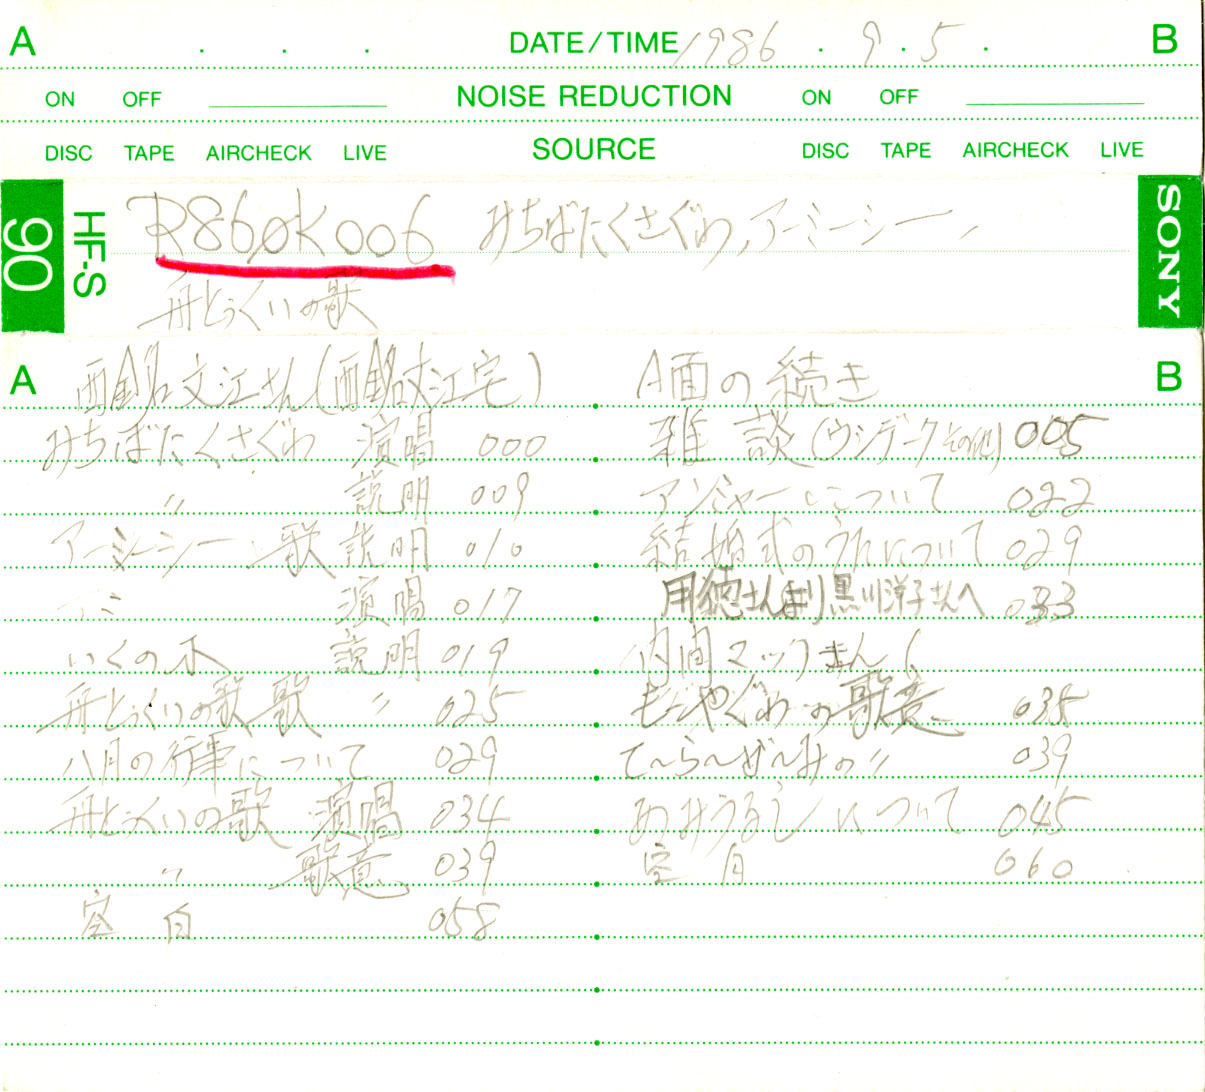 A . . . DATE/TIME 1986 . 9 . 5 . B
ON OFF NOISE REDUCTION ON OFF
DISC TAPE AIRCHECK LIVE SOURCE DISC TAPE AIRCHECK LIVE
90 HF-S SONY
R860K006 みちばたくさぐわ,アーミーシー,
舟とぅくいの歌
A
西銘文江さん(西銘文江宅)
みちばたくさぐわ 演唱 000
〃 説明 009
アーミーシー 歌説明 010
演唱 017
いくの木 説明 019
舟とぅくいの歌 歌 〃 025
八月の行事について 029
舟とぅくいの歌 演唱 034
〃 歌意 039
空白 058
B
A面の続き
雑談(ウシデークその他) 005
アンミャーについて 022
結婚式のうたについて 029
用徳さんより黒川洋子さんへ 033
内間マツさん(
の歌意 035
て〜ら〜ぜ〜みの〃 039
あみうるしについて 045
空白 060